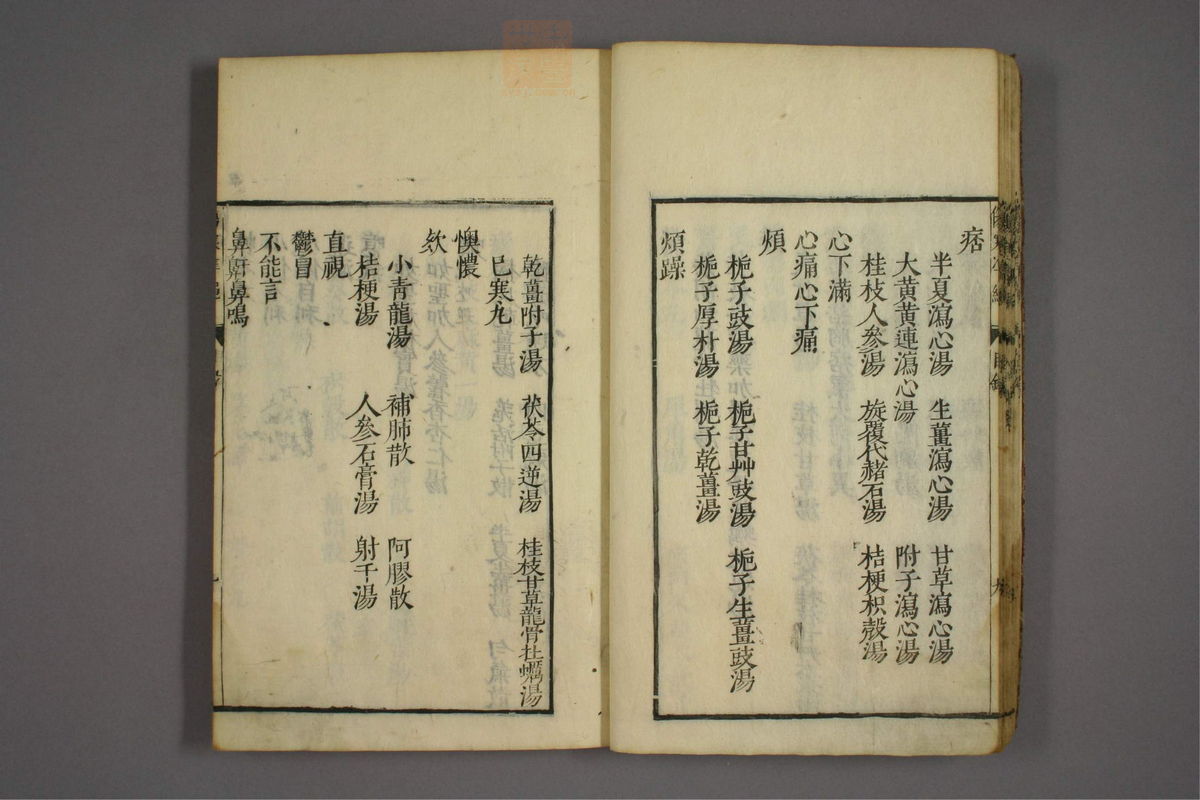 痞
半夏瀉心湯 生薑瀉心湯 甘草瀉心湯
大黄黄連瀉心湯 附子瀉心湯
桂枝人參湯 旋覆代赭石湯 桔梗枳殼湯
心下滿
心痛心下痛
煩
梔子豉湯 梔子甘艸豉湯 梔子生薑豉湯
梔子厚朴湯 梔子乾薑湯
煩躁
乾薑附子湯 茯苓四逆湯 桂枝甘草龍骨牡蠣湯
巳寒丸
懊憹
欬
小靑龍湯 補肺散 阿膠散
桔梗湯 人參石膏湯 射干湯
直視
鬱冒
不能言
鼻鼾鼻鳴